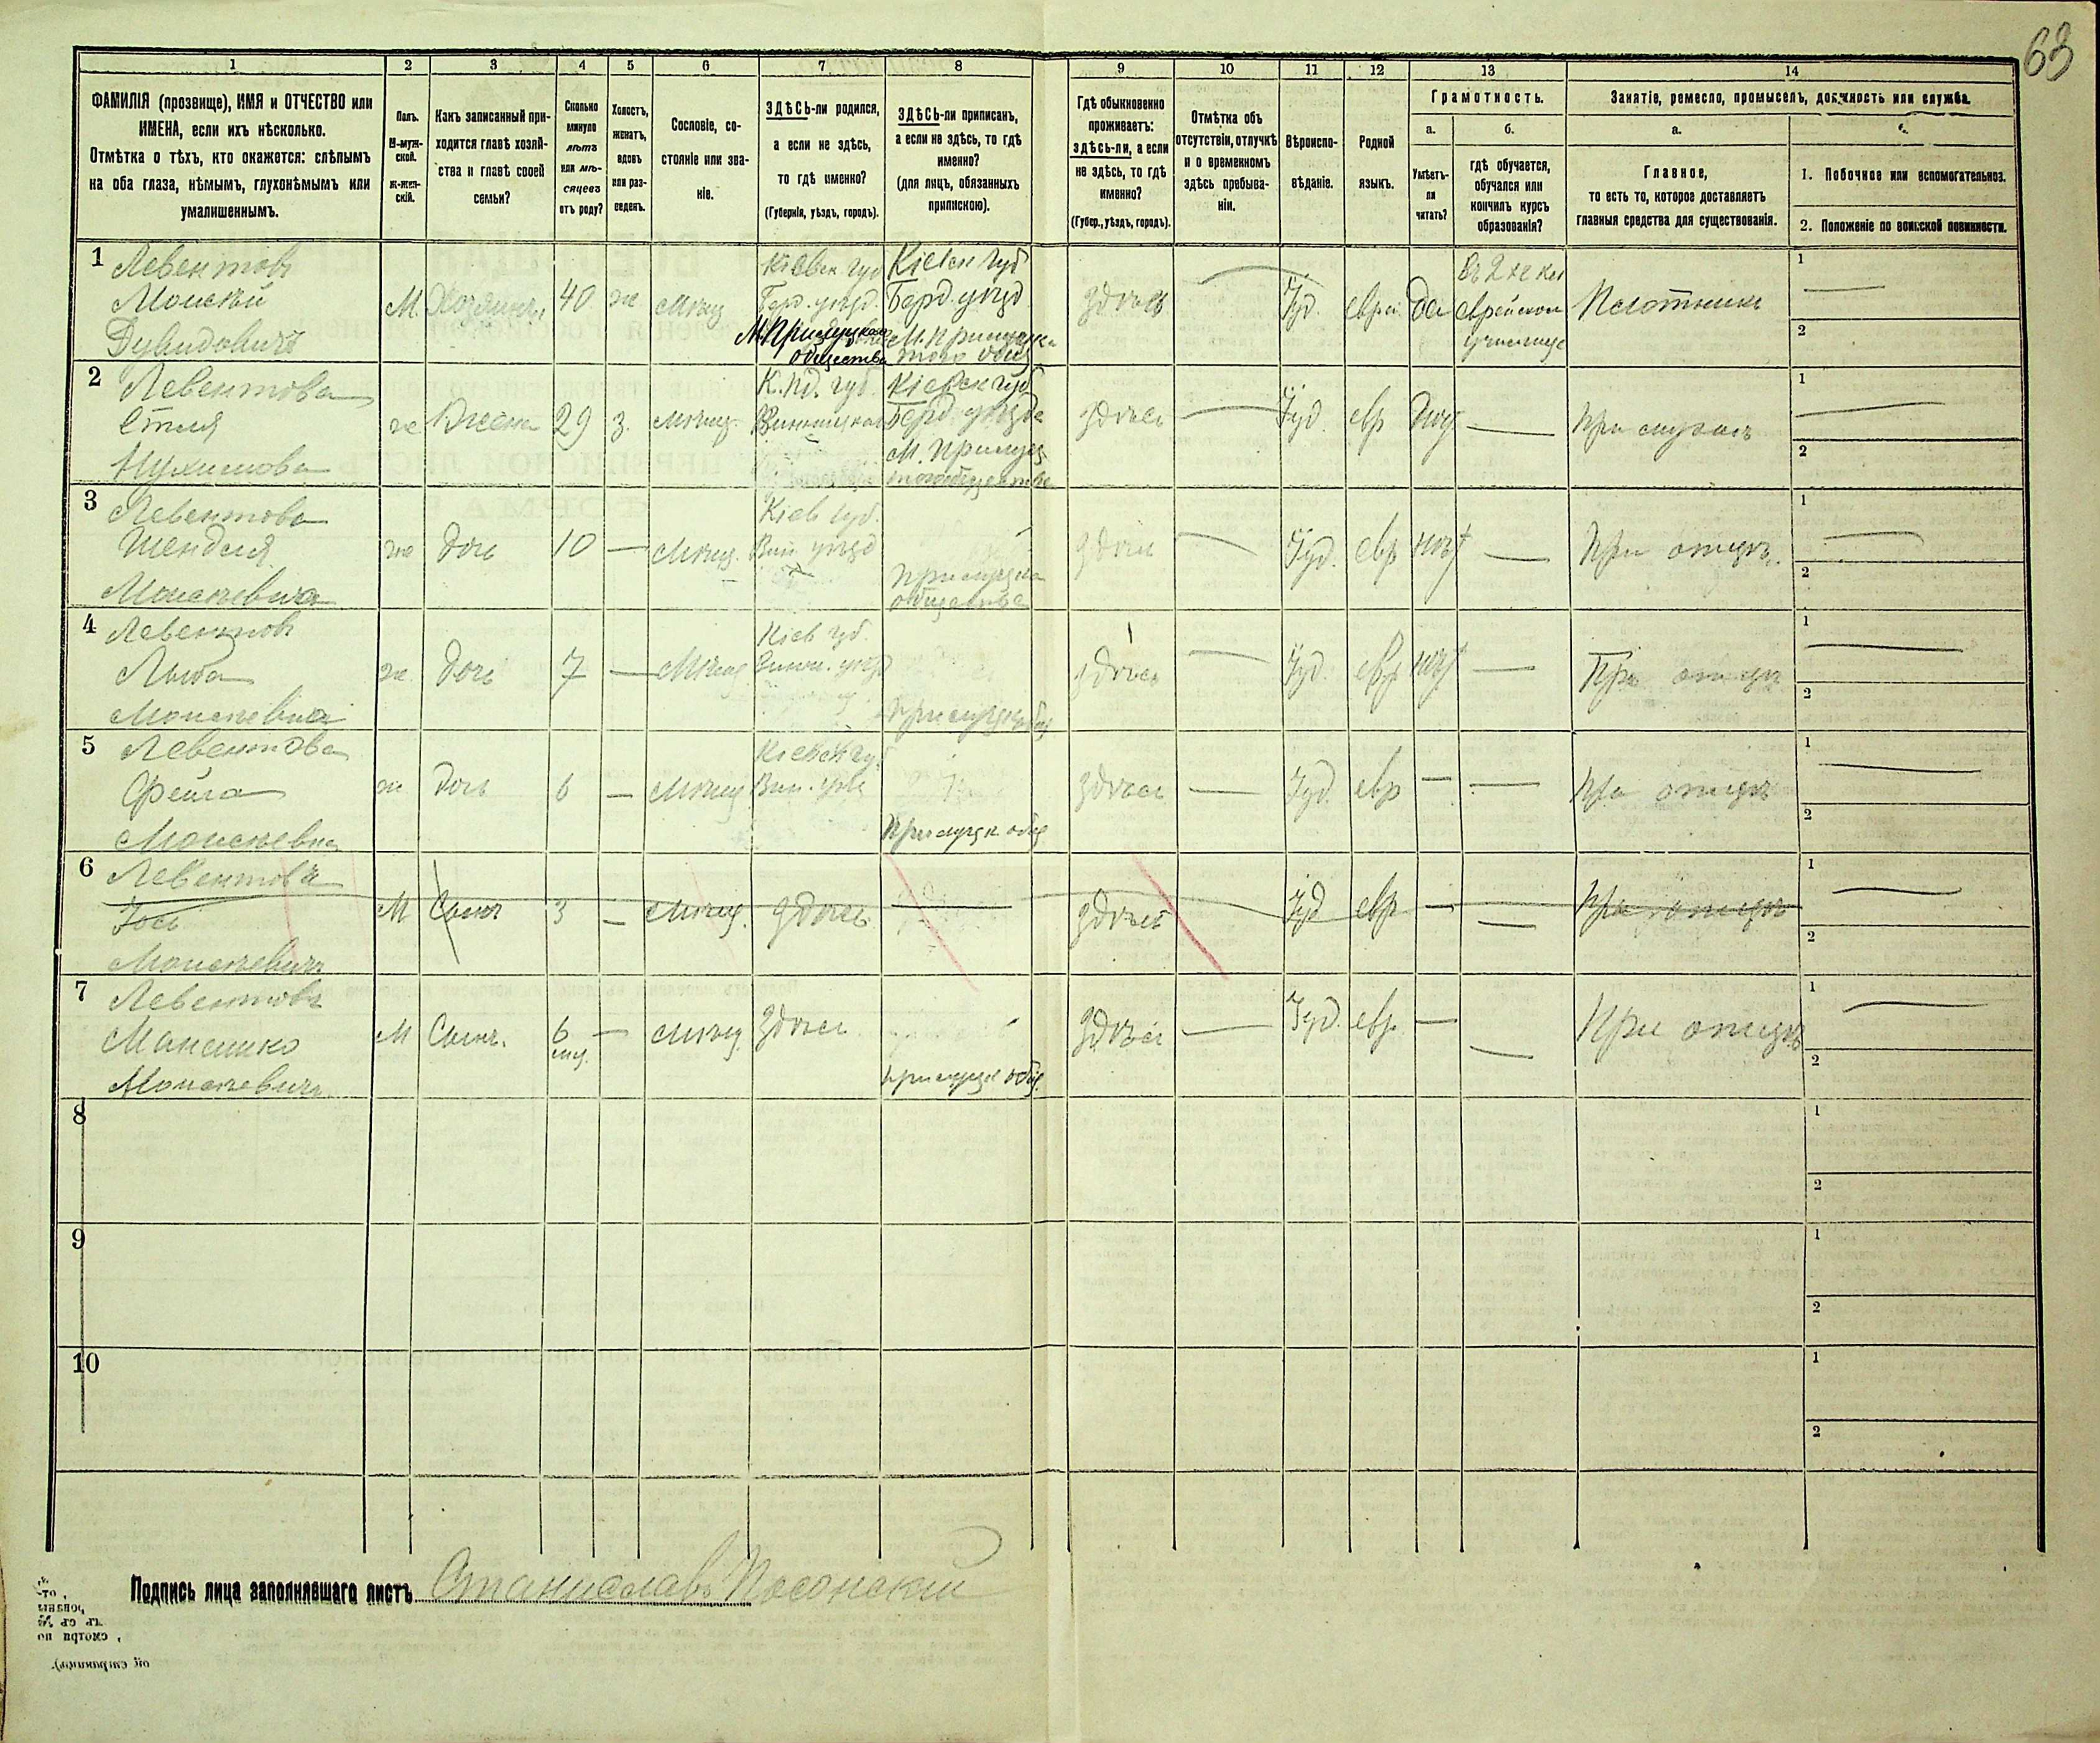 63
1 2 3 4 5 6 7 8 9 10 11 12 13 14
ФАМИЛІЯ (прозвище), ИМЯ и ОТЧЕСТВО или
ИМЕНА, если ихъ нѣсколько.
Отмѣтка о тѣхъ, кто окажется: слѣпымъ
на оба глаза, нѣмымъ, глухонѣмымъ или
умалишеннымъ.
Полъ.
М-муж-
ской.
Ж-жен-
скій.
Какъ записанный при-
ходится главѣ хозяй-
ства и главѣ своей
семьи?
Сколько
минуло
лѣтъ
или мѣ-
сяцевъ
отъ роду?
Холостъ,
женатъ,
вдовъ
или раз-
веденъ.
Сословіе, со-
стояніе или зва-
ніе.
ЗДѢСЬ-ли родился,
а если не здѣсь,
то гдѣ именно?
(Губернія, уѣздъ, городъ).
ЗДѢСЬ-ли приписанъ,
а если не здѣсь, то гдѣ
именно?
(для лицъ, обязанныхъ
припискою).
Гдѣ обыкновенно
проживаетъ:
здѣсь-ли, а если
не здѣсь, то гдѣ
именно?
(Губер., уѣздъ, городъ).
Отмѣтка объ
отсутствіи, отлучкѣ
и о временномъ
здѣсь пребыва-
ніи.
Вѣроиспо-
вѣданіе.
Родной
языкъ.
Грамотность.
а.
Умѣетъ-
ли
читать?
б.
гдѣ обучается,
обучался или
кончилъ курсъ
образованія?
Занятіе, ремесло, промыселъ, должность или служба.
а.
Главное,
то есть то, которое доставляетъ
главныя средства для существованія.
1. Побочное или вспомогательное.
2. Положеніе по воинской повинности.
1 Левентовъ
Моисѣй
Дувидовичъ
М. Хозяинъ 40 ж мѣщ
Кіевск губ
Берд. уѣзд.
М. Прилуцкаго
общества
Кіевск губ
Берд. уѣзд
М. Прилуцк
здѣсь Іуд. еврей да
въ 2 хъ кл
еврейском
училище
Плотникъ
1
2
2 Левентова
Етля
Нухимова
ж Жена 29 з. мѣщ.
Кіевск губ
Берд уѣзда
М. Прилуц
здѣсь Іуд. евр нѣт При мужѣ
1
2
3 Левентова
Шендля
Моисѣевна
ж Дочь 10 мѣщ.
Кіев губ.
Вин уѣзд
Прилуцка
общества
здѣсь Іуд. евр нѣт При отцѣ
1
2
4 Левентов
Лыба
Моисѣевна
ж Дочь 7 мѣщ
Кіев губ.
Вин. уѣзд
Прилуцк общ
здѣсь Іуд. евр нѣт При отцѣ
1
2
5 Левентова
Фейга
Моисѣевна
ж Дочь 6 мѣщ
Кіевск губ
Вин. уѣз
Прилуцк общ
здѣсь Іуд. евр При отцѣ
1
2
6 Левентовъ
Іось
Моисѣевичъ
М Сынъ 3 мѣщ. здѣсь
здѣсь Іуд евр При отцѣ
1
2
7 Левентовъ
Моисѣевичъ
М Сынъ. 6 мѣщ. здѣсь
Прилуцк общ.
здѣсь Іуд. евр. При отцѣ
1
2
8
1
2
9
1
2
10
1
2
Подпись лица заполнявшаго листъ Станиславъ